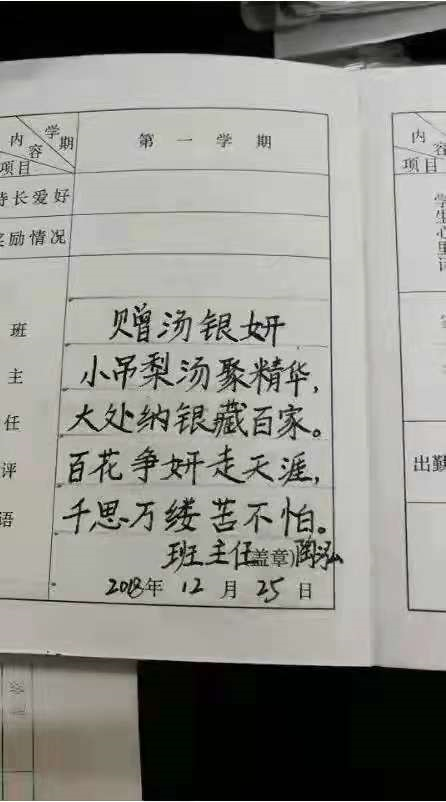 学期
内容
项目
第一学期
特长爱好
奖励情况
班主任评语
赠汤银妍
小吊梨汤聚精华，
大处纳银藏百家。
百花争妍走天涯，
千思万缕苦不怕。
班主任(盖章)陶泓
2018年12月25日
内容
项目
学生心里话
出勤